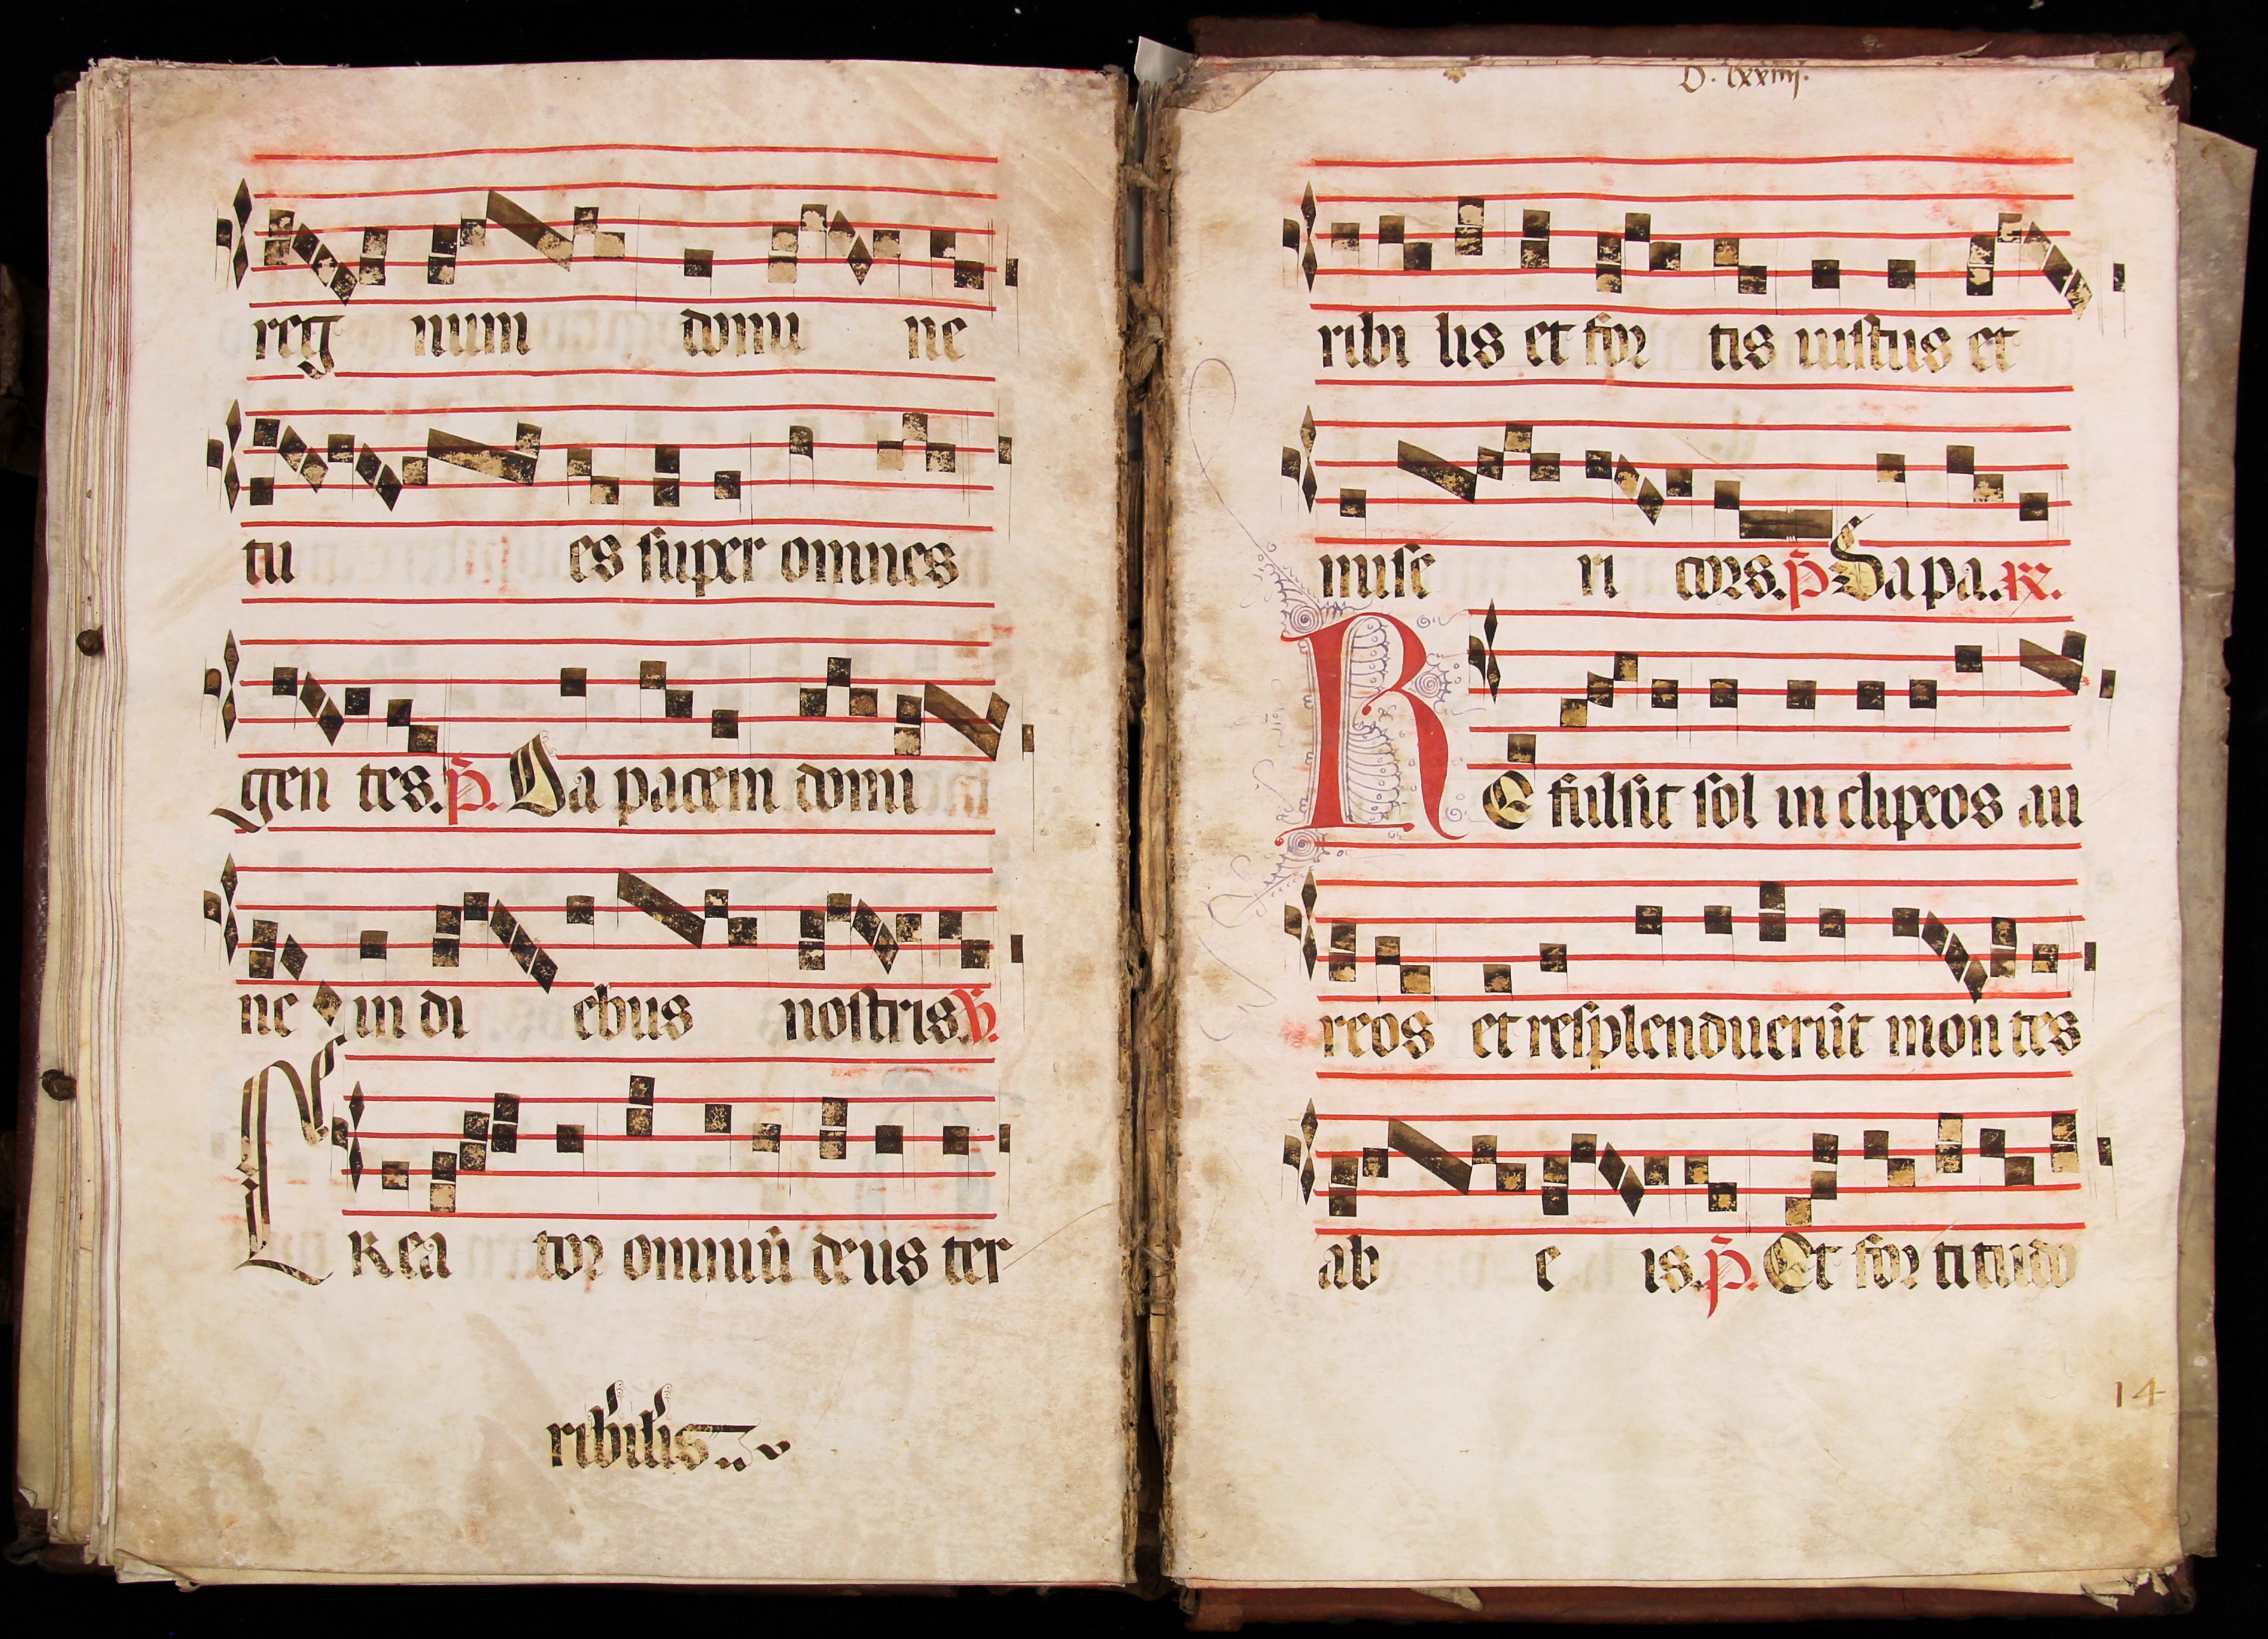 reg num domi ne
tu es super omnes
gen tes. p̄. Da pacem domi
ne in di ebus nostris. ℣.
CRea tor omniū deus ter
ribilis
D. lxxiiij.
ribi lis et for tis iustus et
mise ri cors. p̄ Da pa. rx.
RE fulsit sol in clipeos au
reos et resplenduerūt mon tes
ab e is. p̄. Et for titudo
14